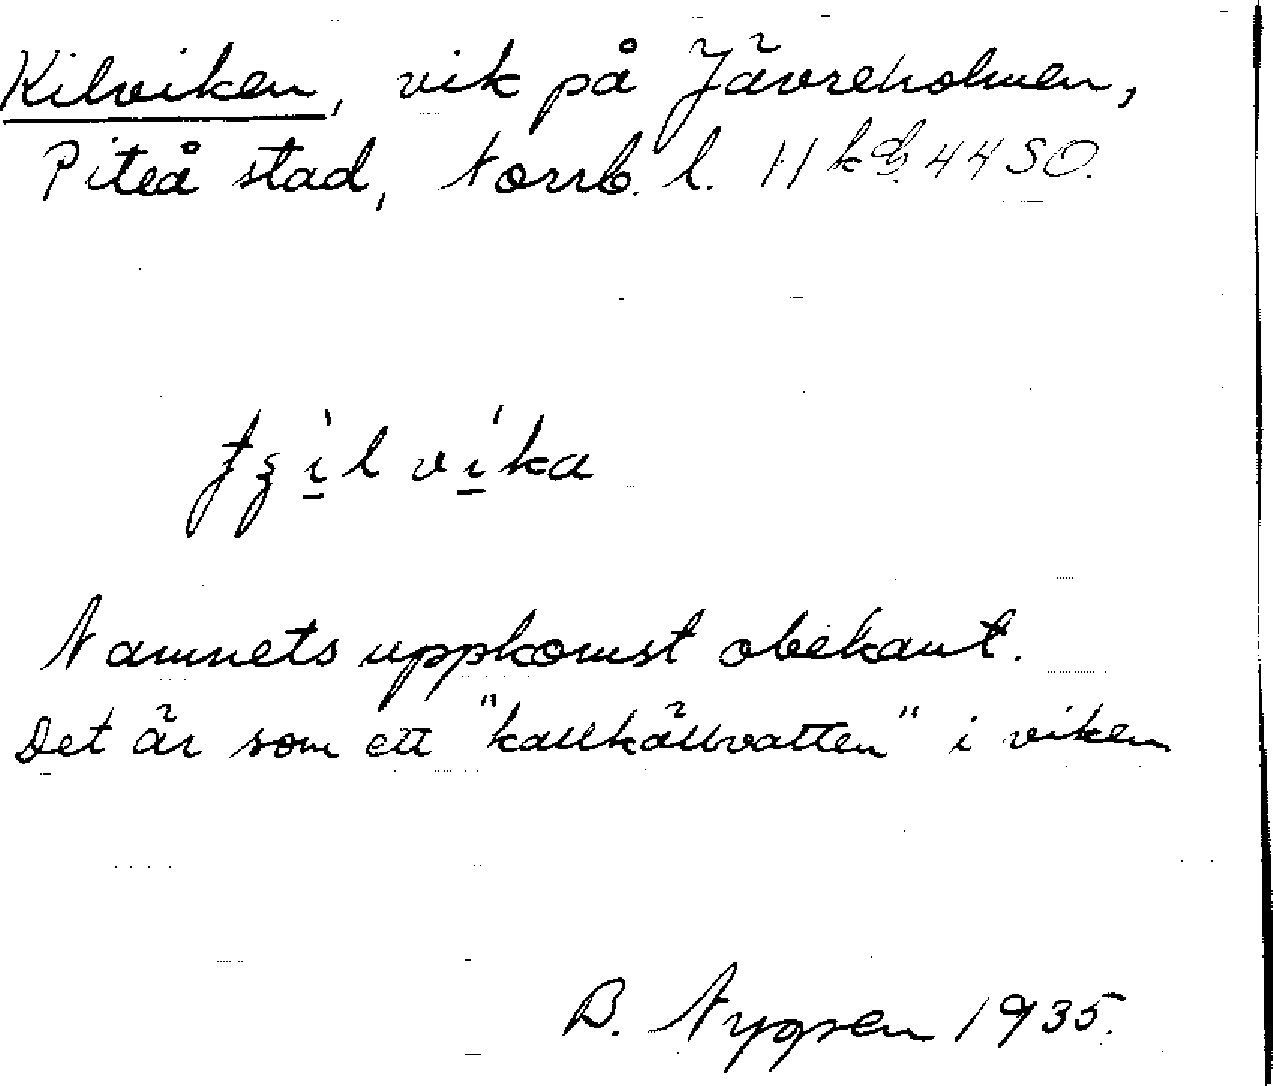 Kilviken, vik på Jävreholmen,
Piteå stad, Norrb. l. Hkbl. 44 SO.
ʃʒì̲l ví̲ka
Namnets uppkomst obekant.
Det är som ett "kallkällvatten" i viken
B. Nygren 1935.